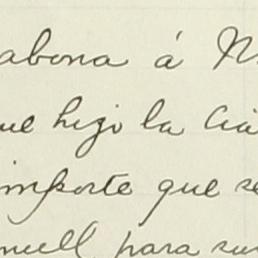 abona á M
ue hizo la Cia
importe que se
nuell para su